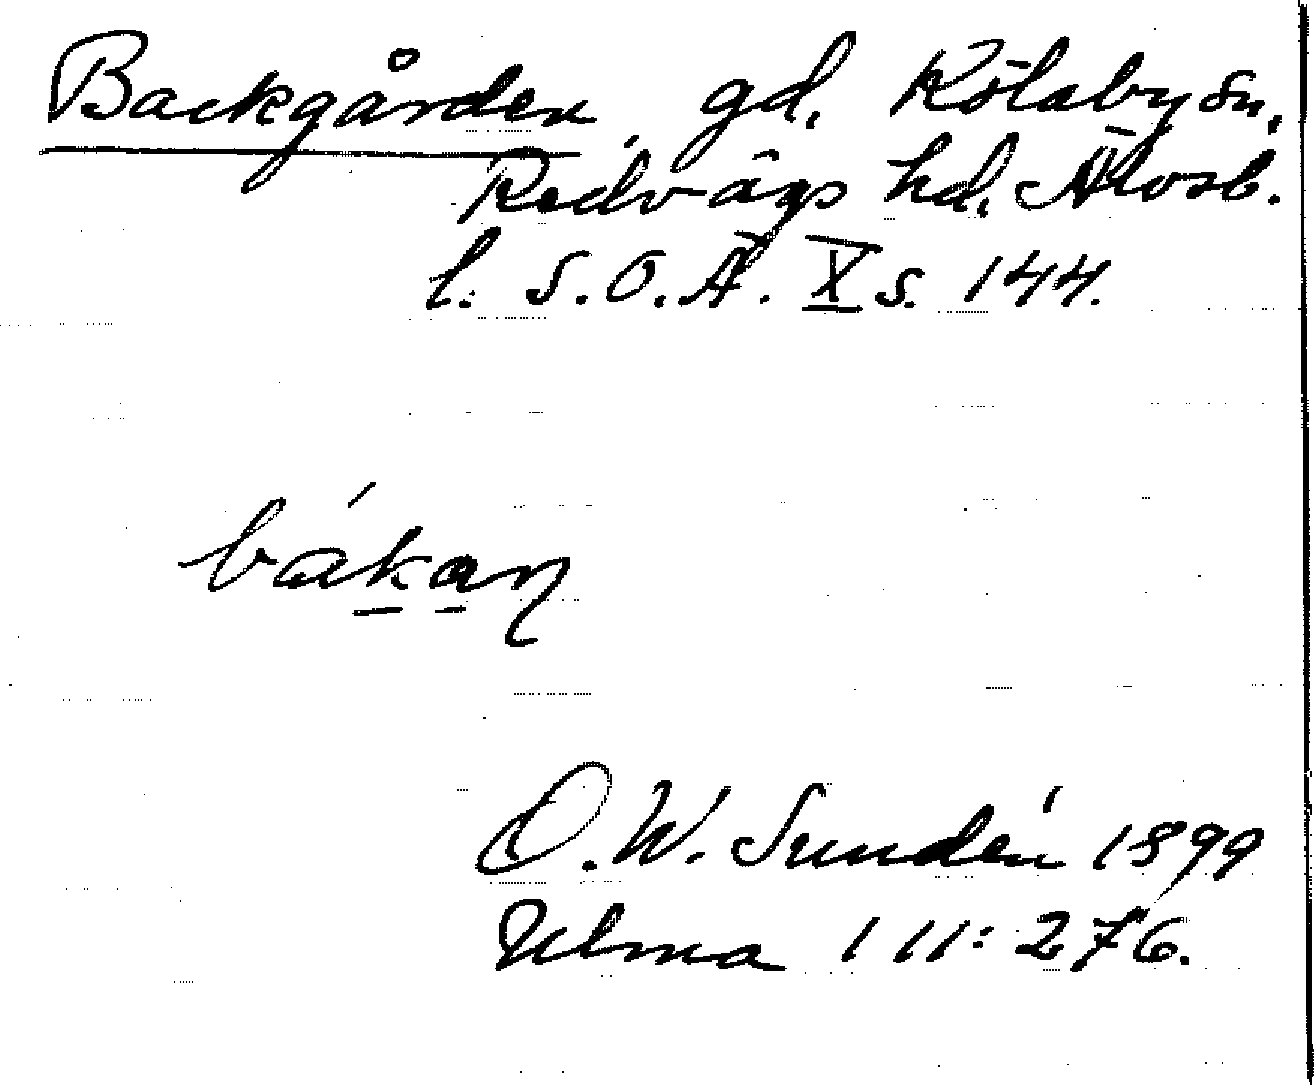 Backgården gd. Kölaby sn,
Redvägs hd. Älvsb.
l. S.O.Ä. X s. 144.
bákaɳ
O. W. Sundén 1899
Ulma 111:276.